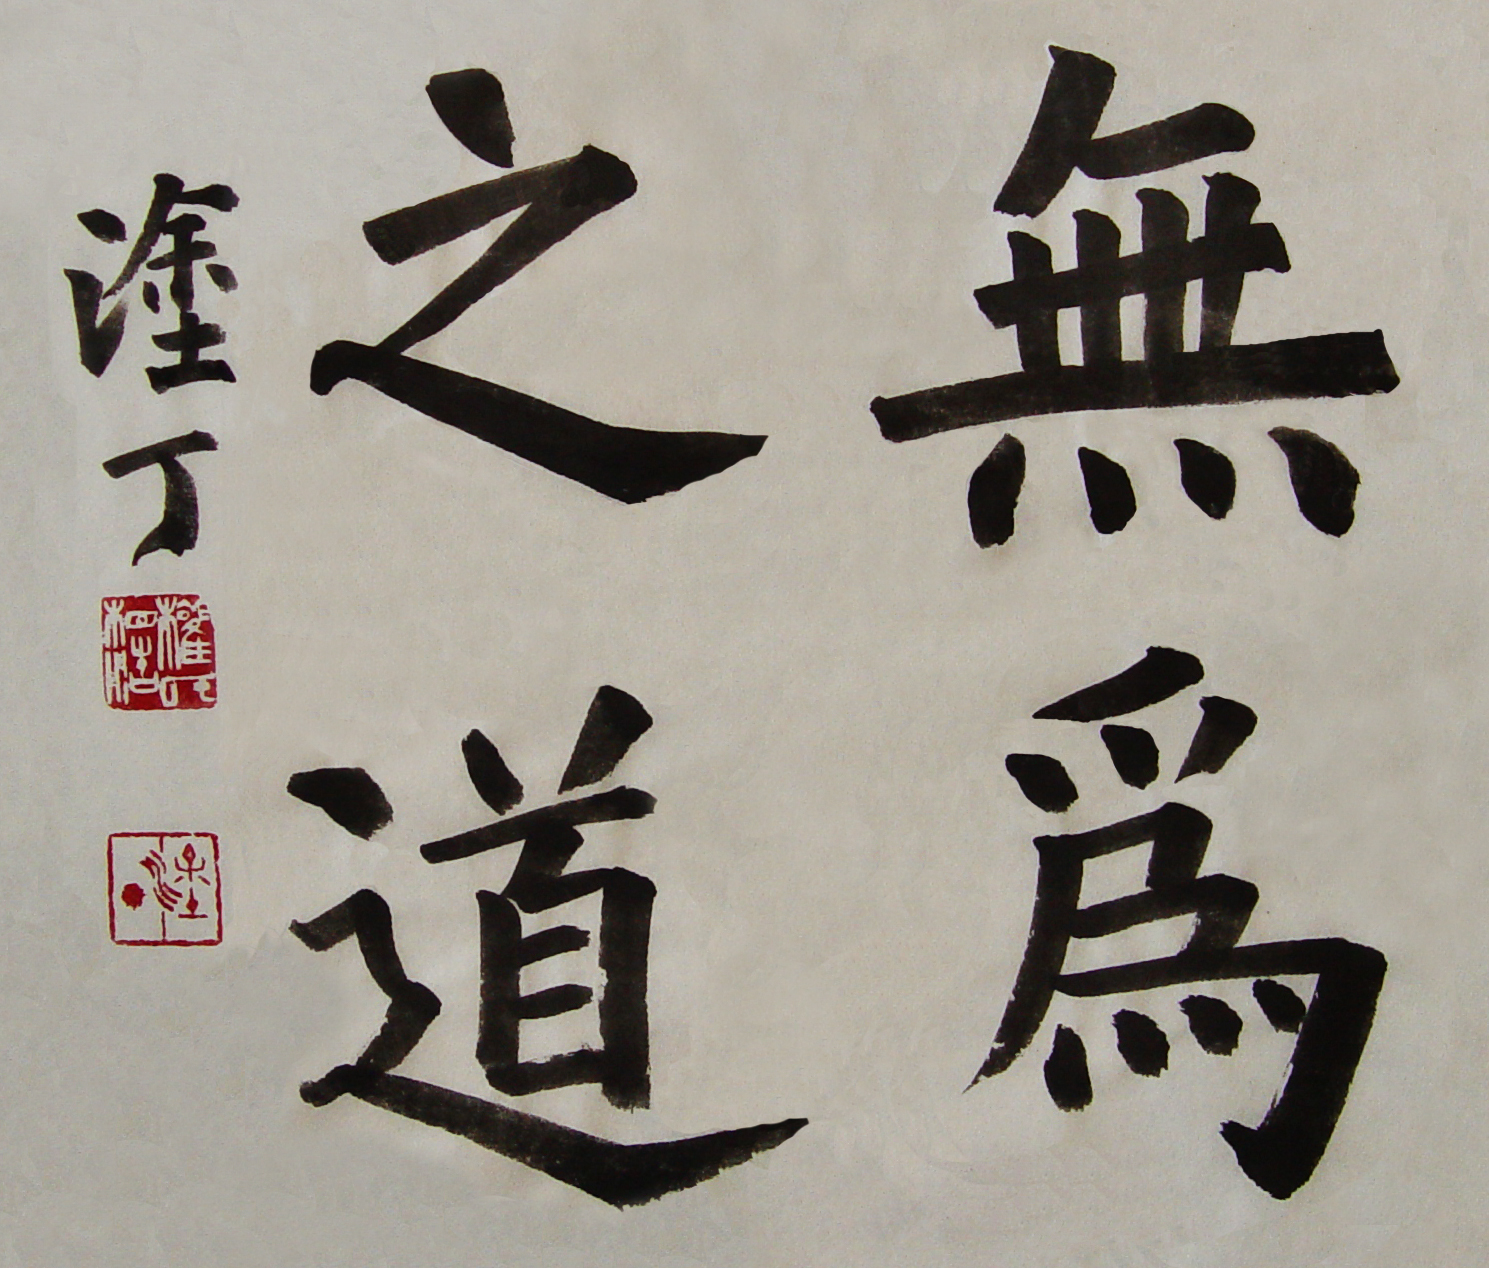 無爲
之道
塗丁